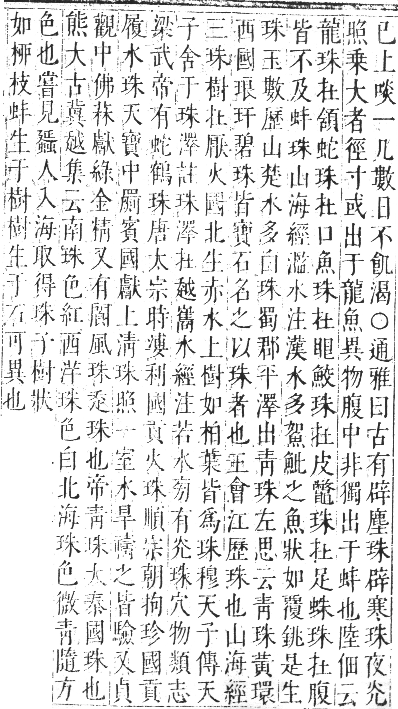 已上啖一几數日不飢渴○通雅曰古有辟塵珠辟寒珠夜光
照乗大者徑寸或出于龍魚異物腹中非獨出于蚌也陸佃云
龍珠在頷蛇珠在口魚珠在眼鮫珠在皮鼈珠在足蛛珠在腹
皆不及蚌珠山海經濫水注漢水多鴐魮之魚狀如覆銚是生
珠玉數歷山楚水多白珠蜀郡平澤出青珠左思云青珠黄環
西國琅玕碧珠皆寶石名之以珠者也王會江歷珠也山海經
三珠樹在厭火國北生赤水上樹如柏葉皆爲珠穆天子傳天
子舍于珠澤註珠澤在越嶲水經注若水旁有光珠穴物類志
梁武帝有蛇鶴珠唐太宗時婆利國貢火珠順宗朝拘珍國貢
履水珠天寶中罽賓國獻上清珠照一室水旱禱之皆驗又貞
觀中佛菻獻綠金精又有閬風珠𨒪珠也帝青珠大秦國珠也
熊大古冀越集云南珠色紅西洋珠色白北海珠色微青隨方
色也嘗見蜑人入海取得珠子樹狀
如柳枝蚌生于樹樹生于石可異也